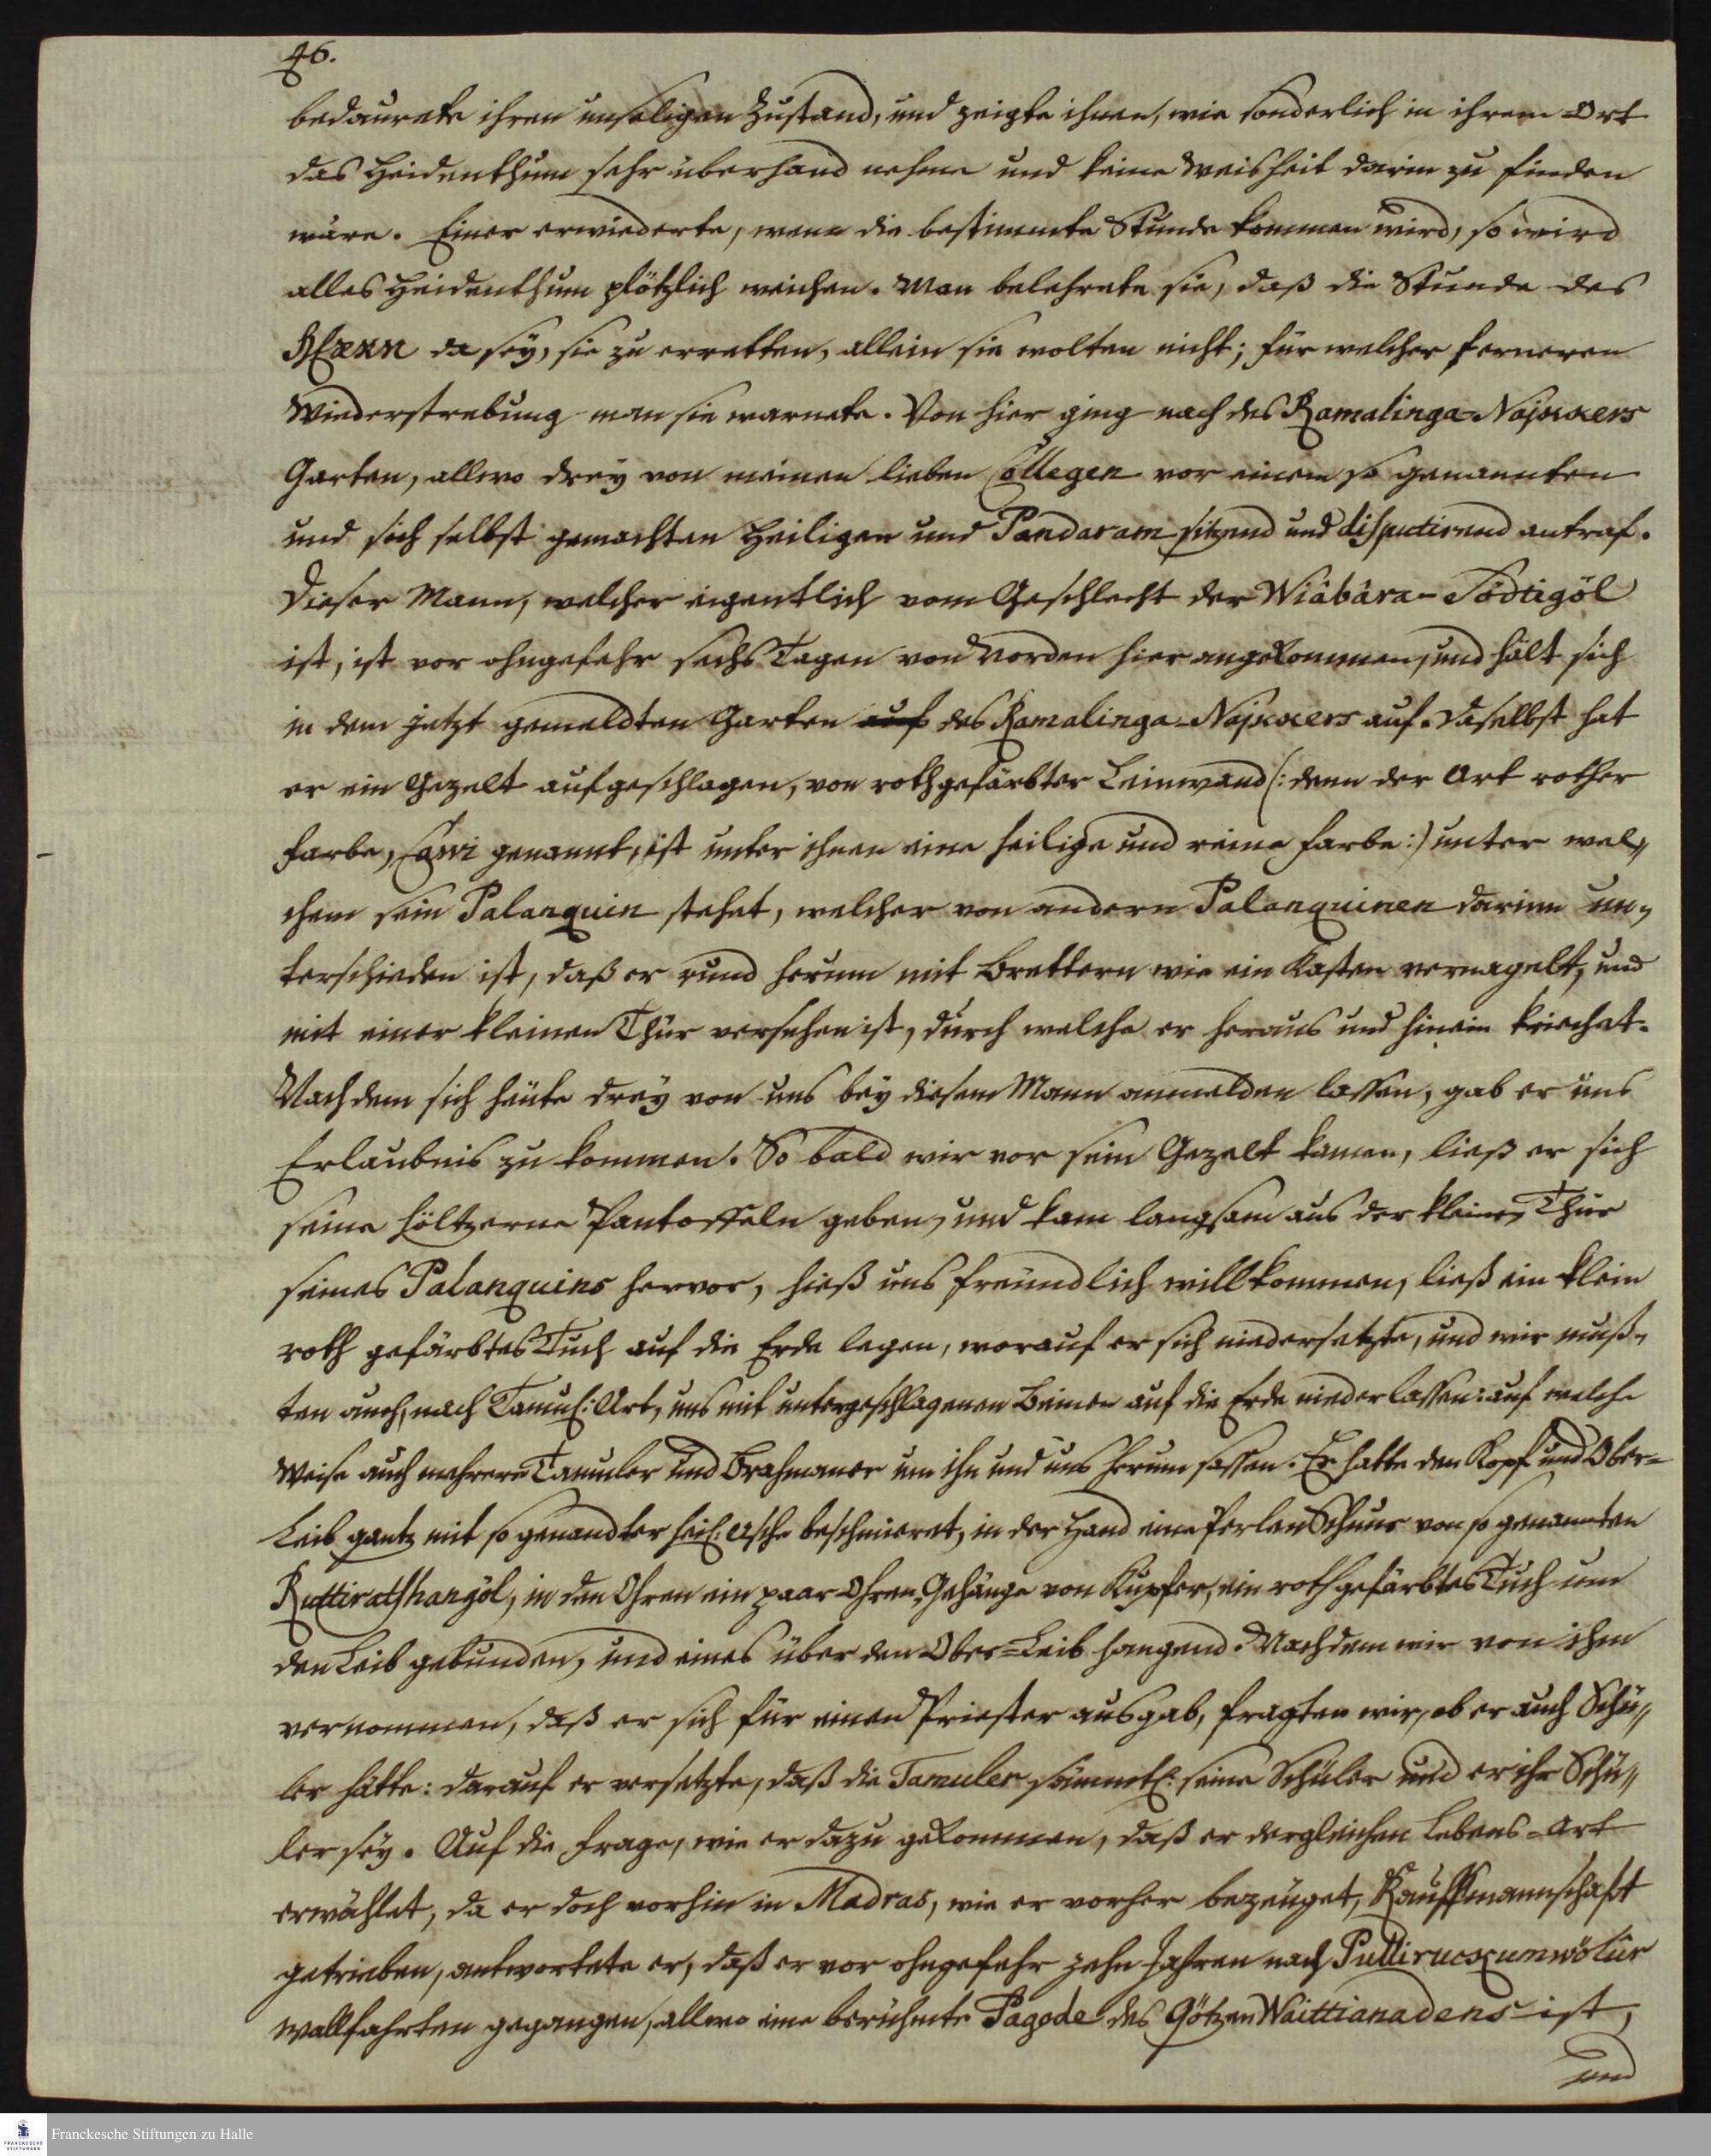 46.
bedaurete ihren unseligen Zustand, und zeigte ihnen, wie sonderlich in ihrem Ort
das Heidenthum sehr überhand nehme und keine Weisheit darin zu finden
wäre. Einer erwiederte, wenn die bestimmte Stunde kommen wird, so wird
alles Heidenthum plötzlich weichen. Man belehrete sie, daß die Stunde des
HErrn da sey, sie zu erretten, allein sie wolten nicht; für welcher ferneren
Wiederstrebung man sie warnete. Von hier ging nach des Ramalinga-Najkkers
Garten, allwo drey von meinen lieben Collegen vor einem so genannten
und sich selbst gemachten Heiligen und Pandaram sitzend und disputirend antraf.
Dieser Mann, welcher eigentlich vom Geschlecht der Wiâbâra-Södtigöl
ist, ist vor ohngefehr sechs Tagen von Norden hier angekommen, und hält sich
in dem jetzt gemeldten Garten auf des Ramalinga-Najkkers auf. Daselbst hat
er ein Gezelt aufgeschlagen, von rothgefärbter Leinwand (: denn der Art rother
Farbe, Cawi genannt, ist unter ihnen eine heilige und reine Farbe :) unter wel„
chem sein Palanquin stehet, welcher von andern Palanquinen darinn un„
terschieden ist, daß er rund herum mit Brettern wie ein Kasten vernagelt, und
mit einer kleinen Thür versehen ist, durch welche er heraus und hinein kriechet.
Nachdem sich heute drey von uns bey diesem Mann anmelden lassen, gab er uns
Erlaubnis zu kommen. So bald wir vor sein Gezelt kamen, ließ er sich
seine höltzerne Pantoffeln geben, und kam langsam aus der kleinen Thür
seines Palanquins hervor, hieß uns freundlich willkommen, ließ ein klein
roth gefärbtes Tuch auf die Erde legen, worauf er sich niedersetzte, und wir muß„
ten auch, nach Tamul: Art, uns mit untergeschlagenen Beinen auf die Erde niederlassen: auf welche
Weise auch mehrere Tamuler und Brahmaner um ihn und uns herum sassen. Er hatte den Kopf und Ober=
Leib gantz mit so genandter heil: Asche beschmieret, in der Hand eine Perlen Schnur von so genannten
Ruttiratshangöl, in den Ohren ein paar Ohren-Gehänge von Kupfer, ein rothgefärbtes Tuch um
den Leib gebunden, und eines über den Ober=Leib hangend. Nachdem wir von ihm
vernommen, daß er sich für einen Priester ausgab, fragten wir, ob er auch Schü„
ler hätte: darauf er versetzte, daß die Tamuler sämmtl: seine Schüler und er ihr Schü„
ler sey. Auf die Frage, wie er dazu gekommen, daß er dergleichen Lebens-Art
erwählet, da er doch vorhin in Madras, wie er vorher bezeuget, Kauffmannschaft
getrieben, antwortete er, daß er vor ohngefehr zehn Jahren nach Pulliruckumwölür
wallfahrten gegangen, allwo eine berühmte Pagode des Götzen Waittianadens ist,
und
Franckesche Stiftungen zu Halle